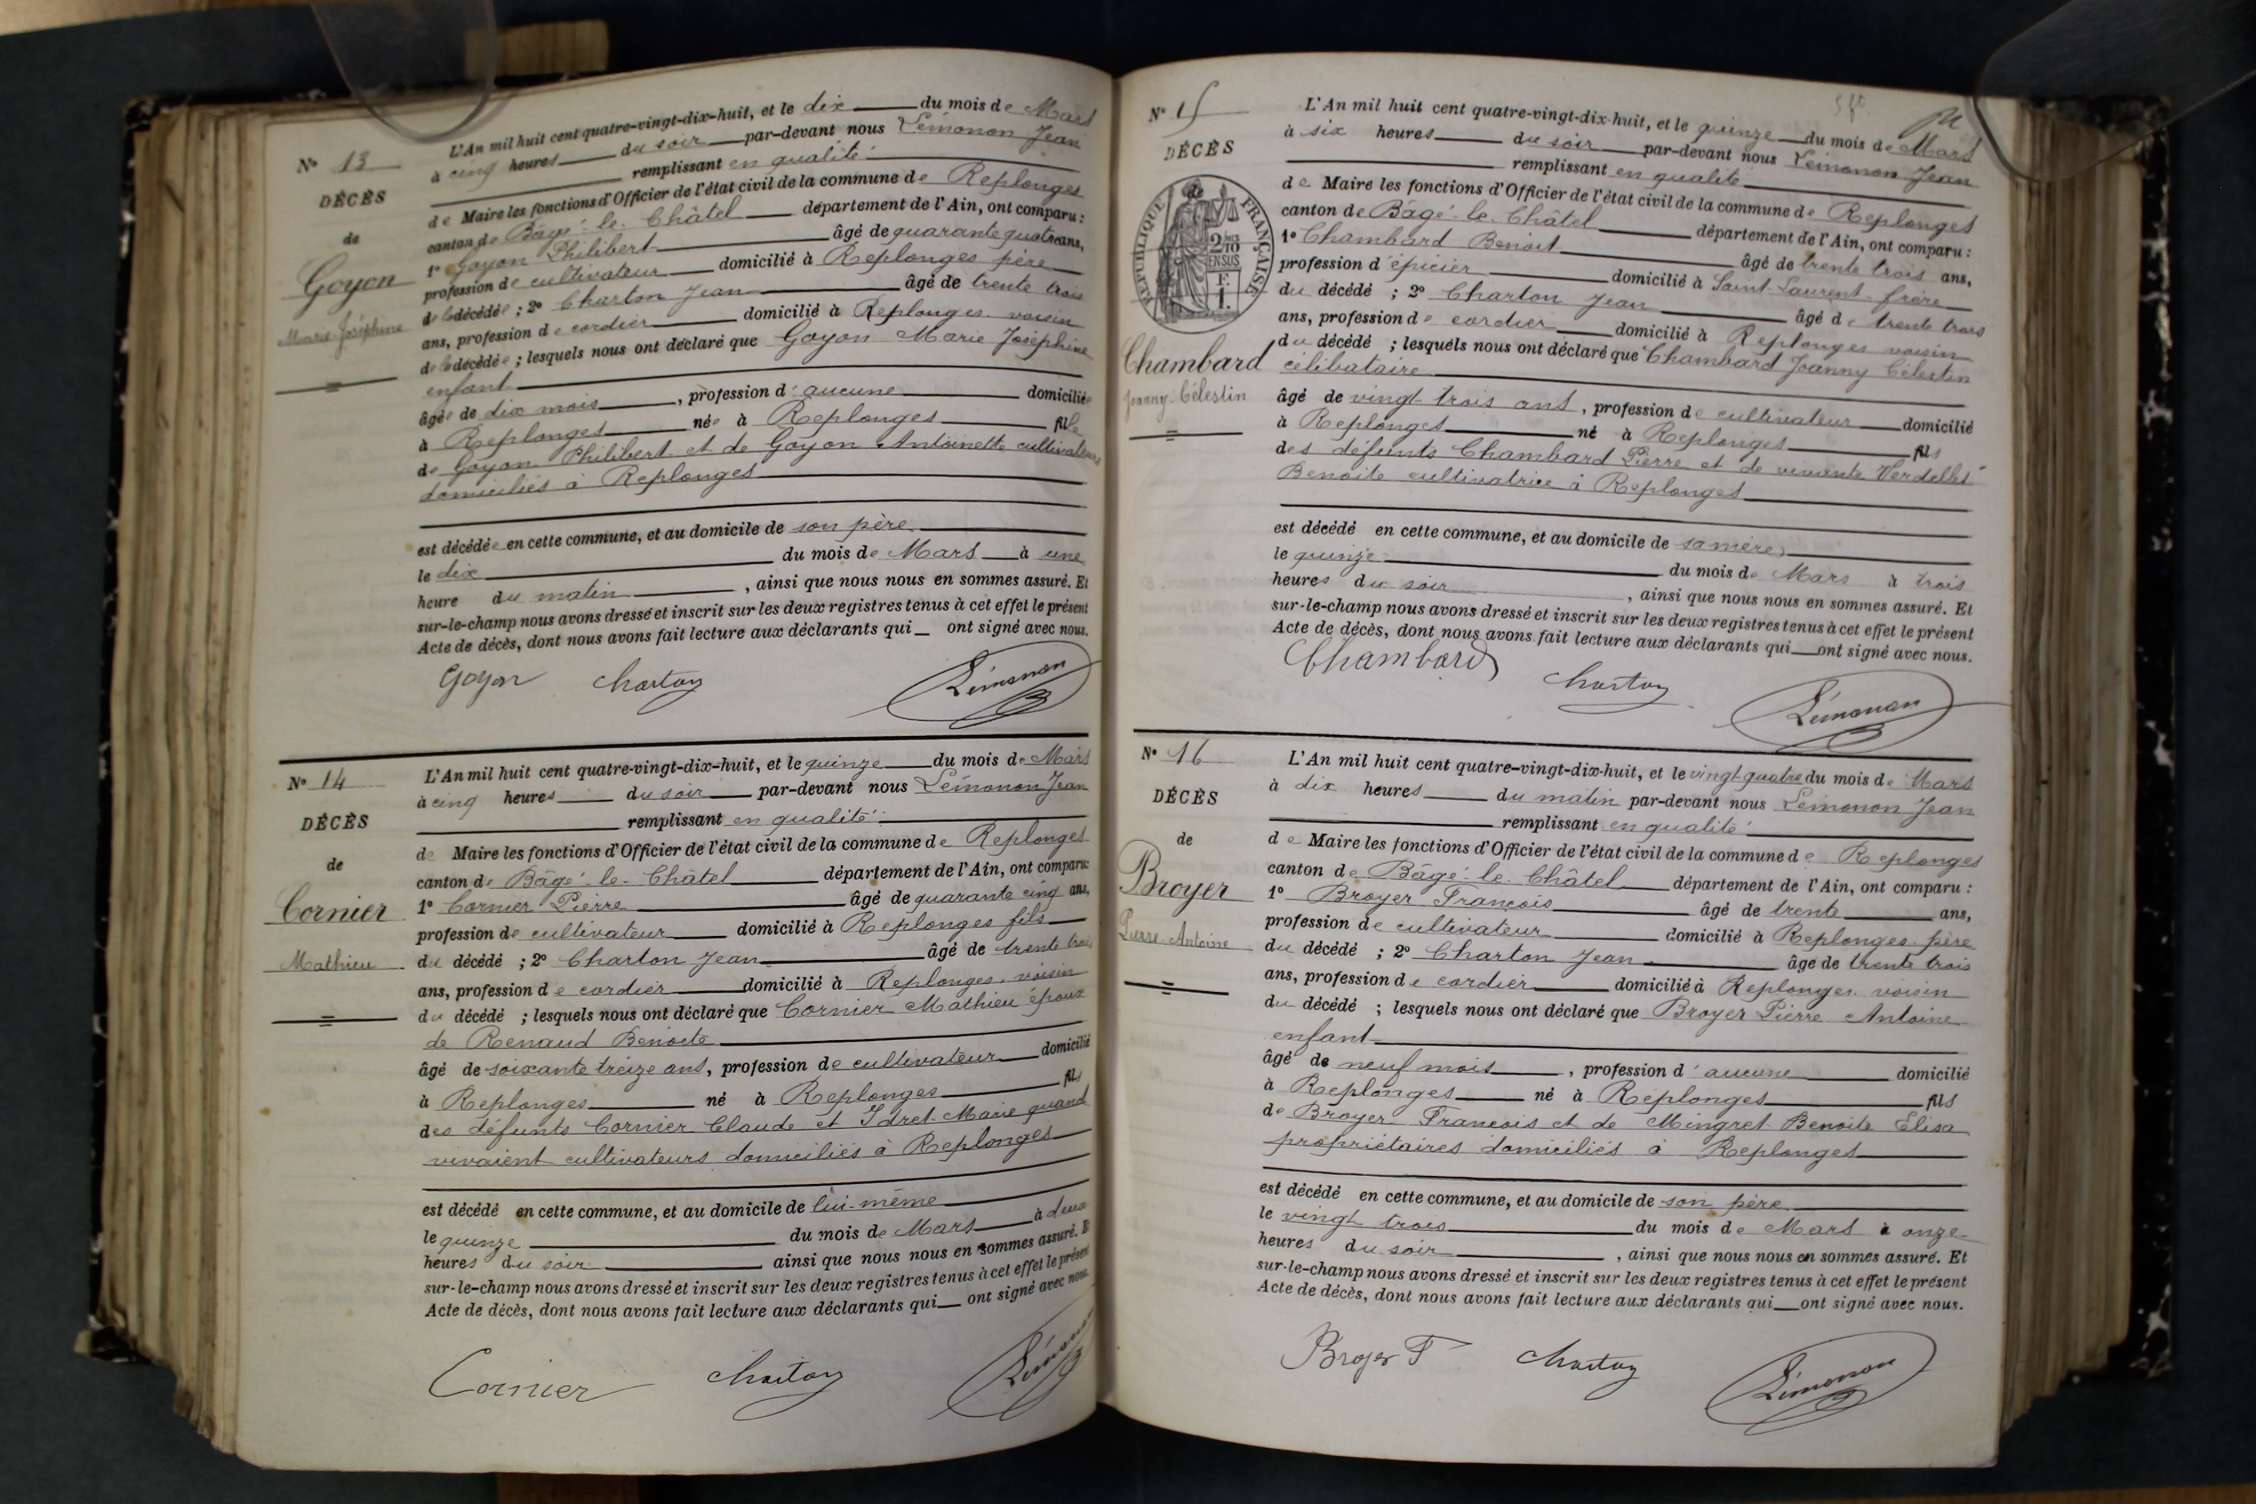 Nº 13
DÉCÈS
de
Goyon
Marie Joséphine
L'An mil huit cent quatre-vingt-dix-huit, et le dix du mois de Mars
à cinq heures du soir par-devant nous Lémonon Jean
remplissant en qualité
de Maire les fonctions d'Officier de l'état civil de la commune de Replonges
canton de Bâgé-le-Châtel département de l'Ain, ont comparu :
1º Goyon Philibert âgé de quarante quatre ans,
profession de cultivateur domicilié à Replonges père
de la décédée ; 2º Charton Jean âgé de trente trois
ans, profession de cordier domicilié à Replonges voisin
de la décédée ; lesquels nous ont déclaré que Goyon Marie Joséphine
enfant
âgée de dix mois, profession d'aucune domiciliée
à Replonges née à Replonges fille
de Goyon Philibert et de Goyon Antoinette cultivateurs
domiciliés à Replonges
est décédée en cette commune, et au domicile de son père
le dix du mois de Mars à une
heure du matin, ainsi que nous nous en sommes assuré. Et
sur-le-champ nous avons dressé et inscrit sur les deux registres tenus à cet effet le présent
Acte de décès, dont nous avons fait lecture aux déclarants qui ont signé avec nous.
Goyon Charton Lémonon
Nº 14
DÉCÈS
de
Cornier
Mathieu
L'An mil huit cent quatre-vingt-dix-huit, et le quinze du mois de Mars
à cinq heures du soir par-devant nous Lémonon Jean
remplissant en qualité
de Maire les fonctions d'Officier de l'état civil de la commune de Replonges
canton de Bâgé-le-Châtel département de l'Ain, ont comparu:
1º Cornier Pierre âgé de quarante cinq ans,
profession de cultivateur domicilié à Replonges fils
du décédé ; 2º Charton Jean âgé de trente trois
ans, profession de cordier domicilié à Replonges voisin
du décédé ; lesquels nous ont déclaré que Cornier Mathieu époux
de Renaud Benoite
âgé de soixante treize ans, profession de cultivateur domicilié
à Replonges né à Replonges fils
des défunts Cornier Claude et Marie quand
vivaient cultivateurs domiciliés à Replonges
est décédé en cette commune, et au domicile de lui-même
le quinze du mois de Mars à deux
heures du soir ainsi que nous nous en sommes assuré. Et
sur-le-champ nous avons dressé et inscrit sur les deux registres tenus à cet effet le présent
Acte de décès, dont nous avons fait lecture aux déclarants qui ont signé avec nous.
Cornier Charton Lémonon
Nº 15
DÉCÈS
de
RÉPUBLIQUE FRANÇAISE
2/10 EN SUS
Chambard
Joanny Célestin
L'An mil huit cent quatre-vingt-dix-huit, et le quinze du mois de Mars
à six heures du soir par-devant nous Lémonon Jean
remplissant en qualité
de Maire les fonctions d'Officier de l'état civil de la commune de Replonges
canton de Bâgé-le-Châtel département de l'Ain, ont comparu :
1º Chambard Benoit âgé de trente trois ans,
profession d'épicier domicilié à Saint-Laurent frère
du décédé ; 2º Charton Jean âgé de trente trois
ans, profession de cordier domicilié à Replonges voisin
du décédé ; lesquels nous ont déclaré que Chambard Joanny Célestin
célibataire
âgé de vingt trois ans, profession de cultivateur domicilié
à Replonges né à Replonges fils
des défunts Chambard Pierre et de vivante
Benoite cultivatrice à Replonges
est décédé en cette commune, et au domicile de sa mère
le quinze du mois de Mars à trois
heures du soir, ainsi que nous nous en sommes assuré. Et
sur-le-champ nous avons dressé et inscrit sur les deux registres tenus à cet effet le présent
Acte de décès, dont nous avons fait lecture aux déclarants qui ont signé avec nous.
Chambard Charton Lémonon
Nº 16
DÉCÈS
de
Broyer
Pierre Antoine
L'An mil huit cent quatre-vingt-dix-huit, et le vingt-quatre du mois de Mars
à dix heures du matin par-devant nous Lémonon Jean
remplissant en qualité
de Maire les fonctions d'Officier de l'état civil de la commune de Replonges
canton de Bâgé-le-Châtel département de l'Ain, ont comparu :
1º Broyer François âgé de trente ans,
profession de cultivateur domicilié à Replonges père
du décédé ; 2º Charton Jean âgé de trente trois
ans, profession de cordier domicilié à Replonges voisin
du décédé ; lesquels nous ont déclaré que Broyer Pierre Antoine
enfant
âgé de neuf mois, profession d'aucune domicilié
à Replonges né à Replonges fils
de Broyer François et de Mingret Benoite Elisa
propriétaires domiciliés à Replonges
est décédé en cette commune, et au domicile de son père
le vingt trois du mois de Mars à onze
heures du soir, ainsi que nous nous en sommes assuré. Et
sur-le-champ nous avons dressé et inscrit sur les deux registres tenus à cet effet le présent
Acte de décès, dont nous avons fait lecture aux déclarants qui ont signé avec nous.
Broyer F Charton Lémonon